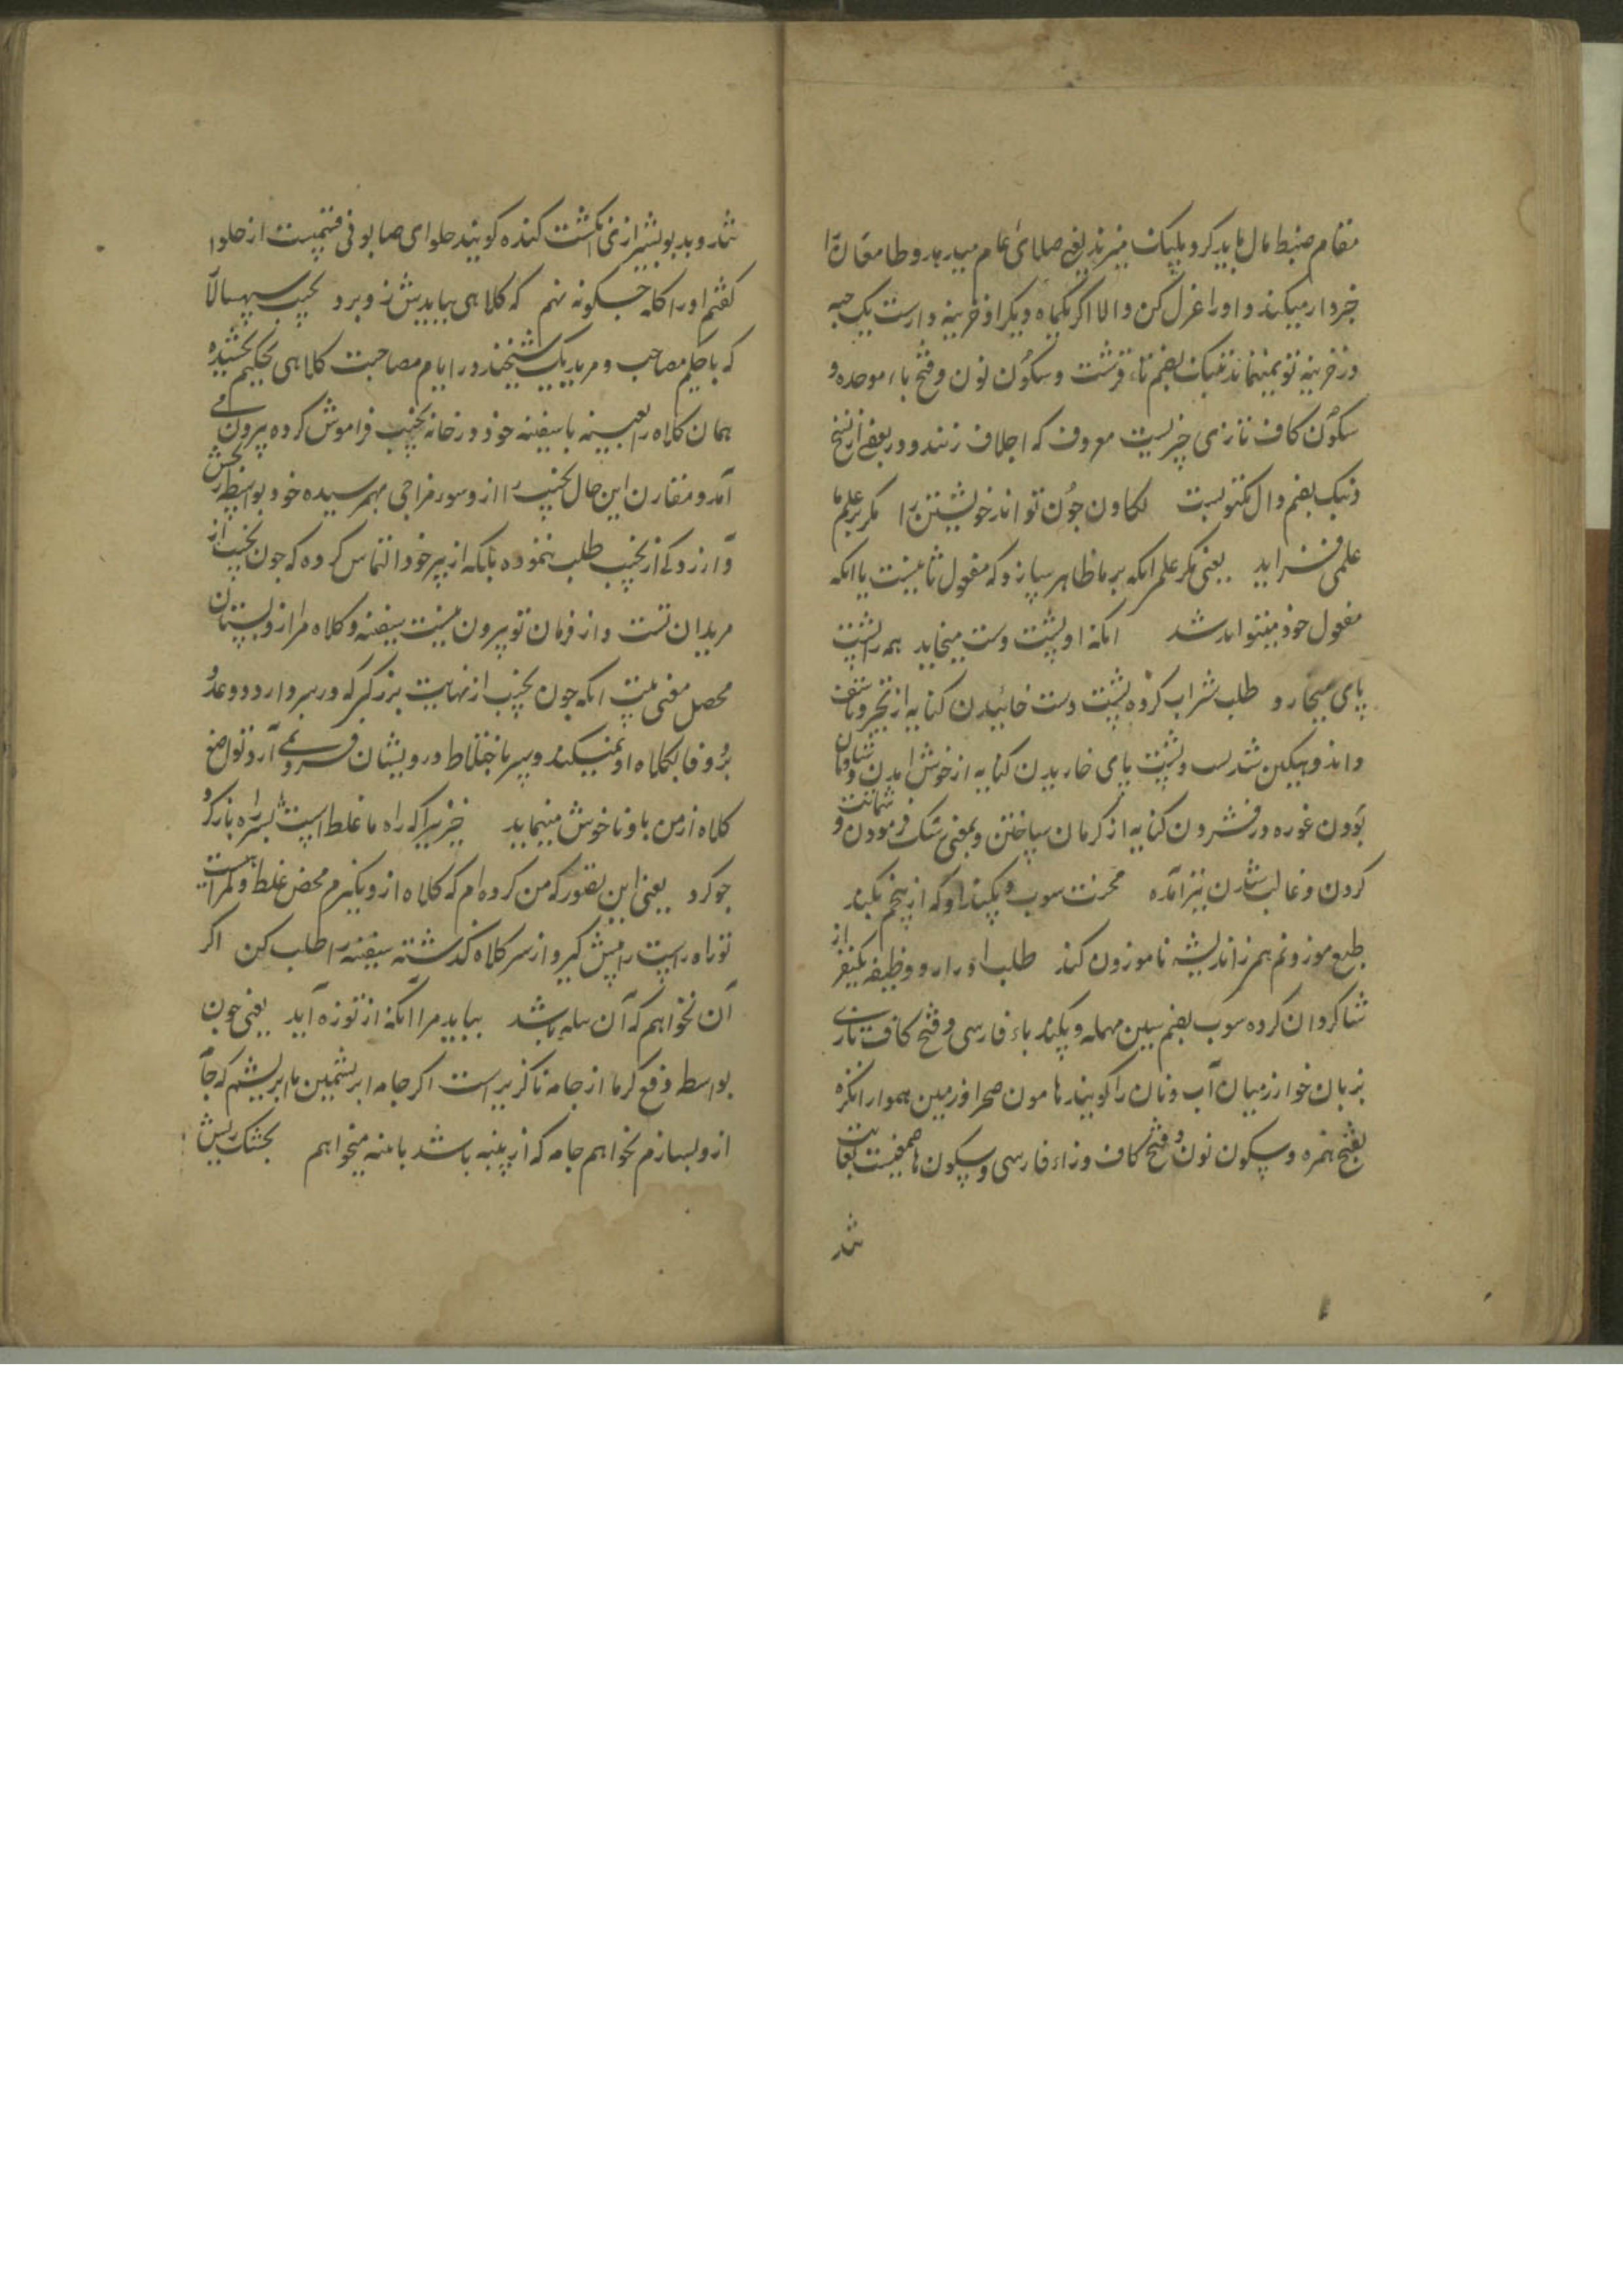 مقام ضبط مال باید کرد و بلپکان میزند یعنی صلای عام میدهد و
خبردار میکند و اورا عزل کن والا اکر یکماه دیکر او خزینه دارست یک حبه
در خزینه تو نمیماند تنبک بضم تاء قرشت و سکون نون و فتح باء موحده و
سکون کاف تازی چیزیست معروف که اجلاف زنند و در بعضی از نسخ
دنبک بضم دال مکتوبست کاون چون تواند خویشتن را مکر بر علم ما
علمی فزاید یعنی مکر علم انکه بر ما ظاهر سازد که مفعول ثانیست یا انکه
مفعول خود میتواند شد انکه او پشت دست میخاید همه را پشت
پای میخارد طلب شراب کرده پشت دست خائیدن کنایه از تحیر و تاسف
و اندوهکین شدنست و پشت پای خاریدن کنایه از خوش امدن و شادمان
بودن غوره در فشردن کنایه از کریان ساختن و بمعنی رشک فرمودن و شماتت
کردن و غالب شدن نیز آمده محنت سوب و پکند او که از پیخم بکند
طبع موزونم هم ز اندیشه ناموزون کند طلب ادرار و وظیفه یکنفر از
شاکردان کرده سوب بضم سین مهمله و پکند باء فارسی و فتح کاف تازی
بزبان خوارزمیان آب و نان را کویند هامون صحرا و زمین هموار انکزه
بفتح همزه و سکون نون و فتح کاف و زاء فارسی و سکون ها صمغیست بغایت
تند
تند و بدبو بشیرازی انکشت کنده کویند حلوای صابونی قسمیست از حلوا
کفتم اورا کله چکونه نهم که کلاهی بباید ش نو برد نجیب سپهسالار
که با حکیم مصاحب و مرید یک شیخند در ایام مصاحبت کلاهی بحکیم بخشیده
همان کلاه را بعینه با سفینه خود در خانه نجیب فراموش کرده بیرون می
آمد و مقارن این حال نجیب را ازو سوء مزاجی بهم رسیده خود بواسطه رنجش
و آزردکی از نجیب طلب ننموده بلکه از پیر خود التماس کرده که چون نجیب از
مریدان تست و از فرمان تو بیرون نیست سفینه و کلاه مرا ازو بستان
محصل معنی بیت انکه چون نجیب از نهایت بزرکی که در سر دارد و وعده
و وفا بکلاه او نمیکند و پیر با اختلاط درویشان فروتنی آرد و تواضع
کلاه از من باو ناخوش مینماید خیز زیراکه راه ما غلط است بسر راه باز کرد
چو کرد یعنی این تصور که من کرده ام که کلاه ازو بکیرم محض غلط و کمراهیست
تو راه راست را پیش کیر و از سر کلاه کذشته سفینه را طلب کن اکر
آن نخواهم که آن پیله باشد بباید مرا آنکه از توزه آید یعنی چون
بواسطه دفع کرما از جامه ناکزیر است اکر جامه ابریشمین یا ابریشم که جامه
ازو بسازم نخواهم جامه که از پنبه باشد یا پنبه میخواهم بخشک ریش